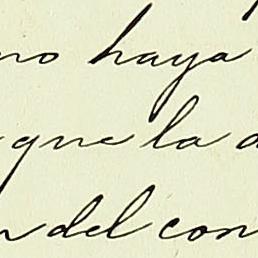 no haya
que la
del con